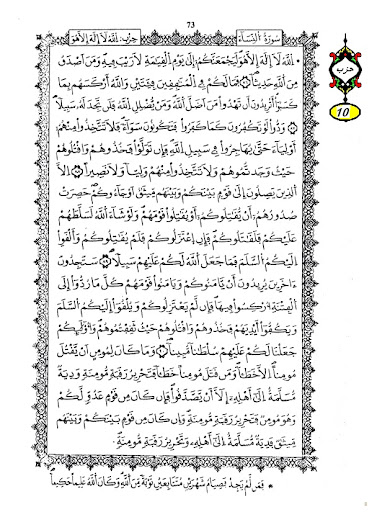 73
سورة النساء
حزب: الله لا إله إلا هو
حزب
10
* الله لا إله إلا هو ليجمعنكم إلى يوم القيمة لا ريب فيه ومن اصدق
من الله حديثا فما لكم في المنفقين فئتين والله أركسهم بما
كسبوا أتريدون أن تهدوا من اضل الله ومن يضلل الله فلن تجد له سبيلا
ودوا لو تكفرون كما كفروا فتكونون سواء فلا تتخذوا منهم
أولياء حتى يهاجروا في سبيل الله فإن تولوا فخذوهم واقتلوهم
حيث وجدتموهم ولا تتخذوا منهم وليا ولا نصيرا الا
الذين يصلون إلى قوم بينكم وبينهم ميثق او جاءوكم حصرت
صدورهم أن يقتلوكم أو يقتلوا قومهم ولو شاء الله لسلطهم
عليكم فلقتلوكم فإن اعتزلوكم فلم يقتلوكم وألقوا
إليكم السلم فما جعل الله لكم عليهم سبيلا ستجدون
ءاخرين يريدون أن يامنوكم ويامنوا قومهم كل ما ردوا إلى
الفتنة أركسوا فيها فإن لم يعتزلوكم ويلقوا إليكم السلم
ويكفوا أيديهم فخذوهم واقتلوهم حيث ثقفتموهم وأولئكم
جعلنا لكم عليهم سلطنا مبينا وما كان لمومن أن يقتل
مومنا الا خطئا ومن قتل مومنا خطئا فتحرير رقبة مومنة ودية
مسلمة إلى أهله إلا أن يصدقوا فإن كان من قوم عدو لكم
وهو مومن فتحرير رقبة مومنة وإن كان من قوم بينكم وبينهم
ميثق فدية مسلمة الى أهله وتحرير رقبة مومنة
* فمن لم يجد فصيام شهرين متتابعين توبة من الله وكان الله عليما حكيما